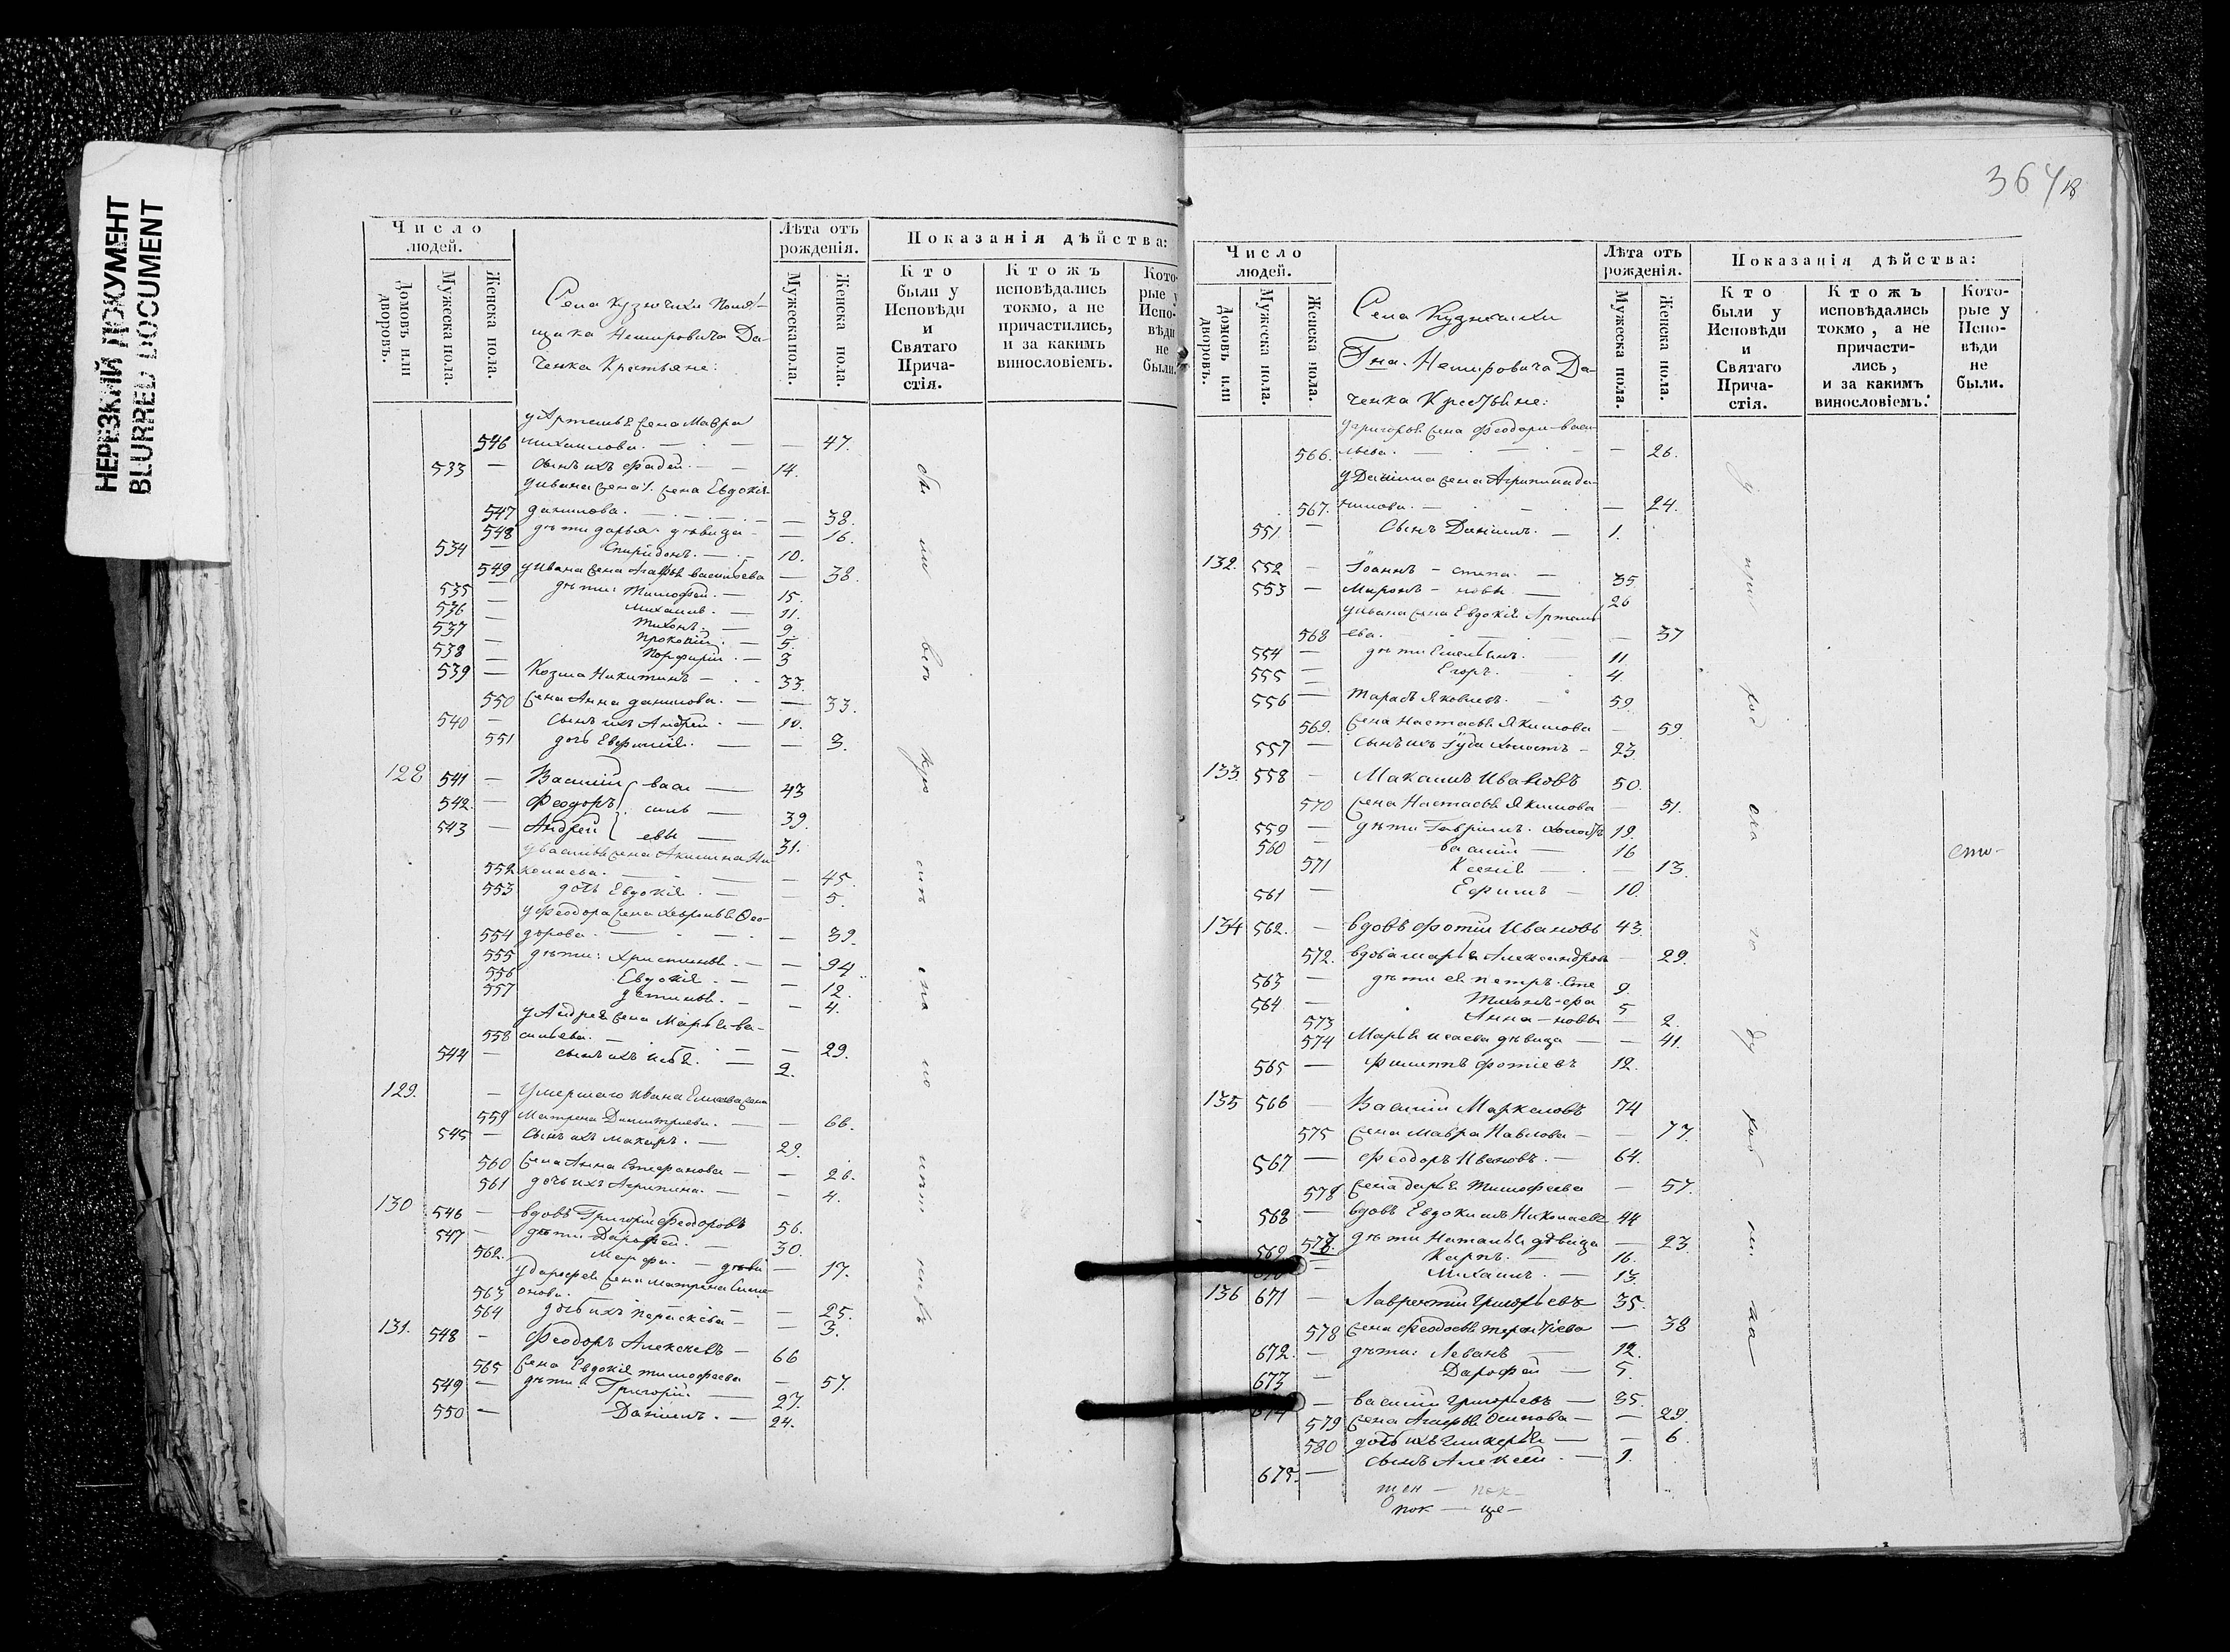 НЕРЕЗКИЙ ДОКУМЕНТ
BLURRED DOCUMENT
Число людей.
Лѣта отъ рожденія.
Показанія дѣйства:
Домовъ или дворовъ.
Мужеска пола.
Женска пола.
Села Кузничихи Помѣ-
щика Немировича Да-
ченка Крестьяне:
Мужеска пола.
Женска пола.
Кто были у Исповѣди и Святаго Прича- стія.
Ктожъ исповѣдались токмо, а не причастились, и за какимъ винословіемъ.
Кото- рые у Испо- вѣди не были.
у Артемья жена Мавра
546 Михаилова. — — 47.
533 — сынъ ихъ Фадей. — 14.
у Ивана жена Евдокія
547 данилова. — — 38.
548 дѣти дарья дѣвица — — 16.
534 — Спиридонъ. — 10.
549 у Ивана жена Агафья васильева — 38.
535 — дѣти: Тимофей. — 15.
536 — Михаилъ. — 11.
537 — Тихонъ. — 9.
538 — Прокопій. — 5.
— Порфирій. — 3
539 — Козма Никитинъ — 33.
550 жена Анна данилова. — — 33.
540 — сынъ ихъ Андрей. — 10.
551 дочь Евфимія. — — 3.
128 541 — Василій васи — 43
542. — Феодоръ силь — 39.
543 — Андрей евы — 31.
у василья жена Акилина Ни-
552 колаева. — — 45.
553 дочь Евдокія. — — 5.
у Феодора жена Хевронья Ѳео-
554 дорова. — — 39.
555 дѣти: Христинья. — — 94.
556 Евдокія. — — 12.
557 устинья. — — 4.
у Андрея жена Марья ва-
558 сильева. — — 29.
544 — сынъ ихъ — 2.
129. — Умершаго Ивана Елисеева жена
559 Матрена Димитриева. — — 66.
545 — сынъ ихъ Макаръ. — 29.
560 жена Анна Стефанова — — 26.
561 дочь ихъ Агрипина. — — 4.
130 546 — вдовъ Григорій Феодоровъ 56.
547 — дѣти Дарофей. — 30.
562. Марфа. — дѣви — 17.
у дарофея жена Матрена Симе-
563 онова. — 25.
564 дочь ихъ Параскева — — 3.
131. 548 — Феодоръ Алексѣевъ — 66
565 жена Евдокія тимофеева — 57.
549 — дѣти: Григорій — 27.
550 — Даніилъ. — 24.
364 18
Число людей.
Лѣта отъ рожденія.
Показанія дѣйства:
Домовъ или дворовъ.
Мужеска пола.
Женска пола.
Села Кузничихи
Гна. Немировича Да-
ченка Крестьяне:
Мужеска пола.
Женска пола.
Кто были у Исповѣди и Святаго Прича- стія.
Ктожъ исповѣдались токмо, а не причасти- лись, и за какимъ винословіемъ.
Кото- рые у Испо- вѣди не были.
у григорья жена Феодора васи-
566. льева. — — 26.
у Даніила жена Агрипина да-
567. нилова. — — 24.
551 — Сынъ Даніилъ. — 1.
132. 552 — Іоаннъ — 35
553 — Миронъ — новы — 26
у ивана жена Евдокія Артемь
568 ева. — 37
554 — дѣти — 11
555 — Егоръ. 4.
556 — Тарасъ Яковлевъ. 59
569. жена Настасья Якимова — 59.
557 — сынъ ихъ Іуда холостъ — 23.
133. 558 — Макаимъ Ивановъ 50.
570 жена Настасья Якимова — 51.
559 — дѣти Гавріилъ. холостъ 19.
560 — василій — 16
571 Ксенія — 13.
561 — Ефимъ — 10.
134 562. — вдовъ Фотій Ивановъ 43.
572. вдова марья Александрова — 29.
563 — дѣти ея Петръ. Сте 9.
564 — Тихонъ — фа 5
573 Анна — новы — 2.
574 Марья исаева дѣвица — — 41.
565 — Филиппъ фотіевъ 12.
135 566 — Василій Маркеловъ 74
575 жена Мавра Павлова — — 77.
567 — Феодоръ Ивановъ. — 64.
578 жена дарья Тимофеева — 57.
568 — вдовъ Евдокимъ Николаевъ 44
577. дѣти Наталья дѣвица — 23
569 — Карпъ. — 16.
— Михаилъ. — 13.
136 671 — Лаврентій григорьевъ 35.
578 жена Феодосья терентіева — 38
672. — дѣти: Леванъ — 12.
673 — Дарофей — 5.
674 — василій григорьевъ — 35.
579 жена Агафья Осипова — — 29.
580 дочь ихъ гликерья — — 6.
675. — сынъ Алексѣй. — 1.